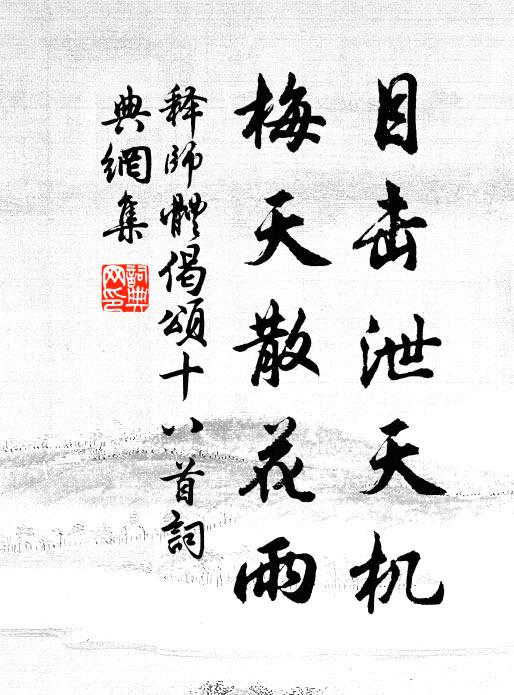 目击泄天机
梅天散花雨
释师體偈頌十八首詞
典網集
詞典网印